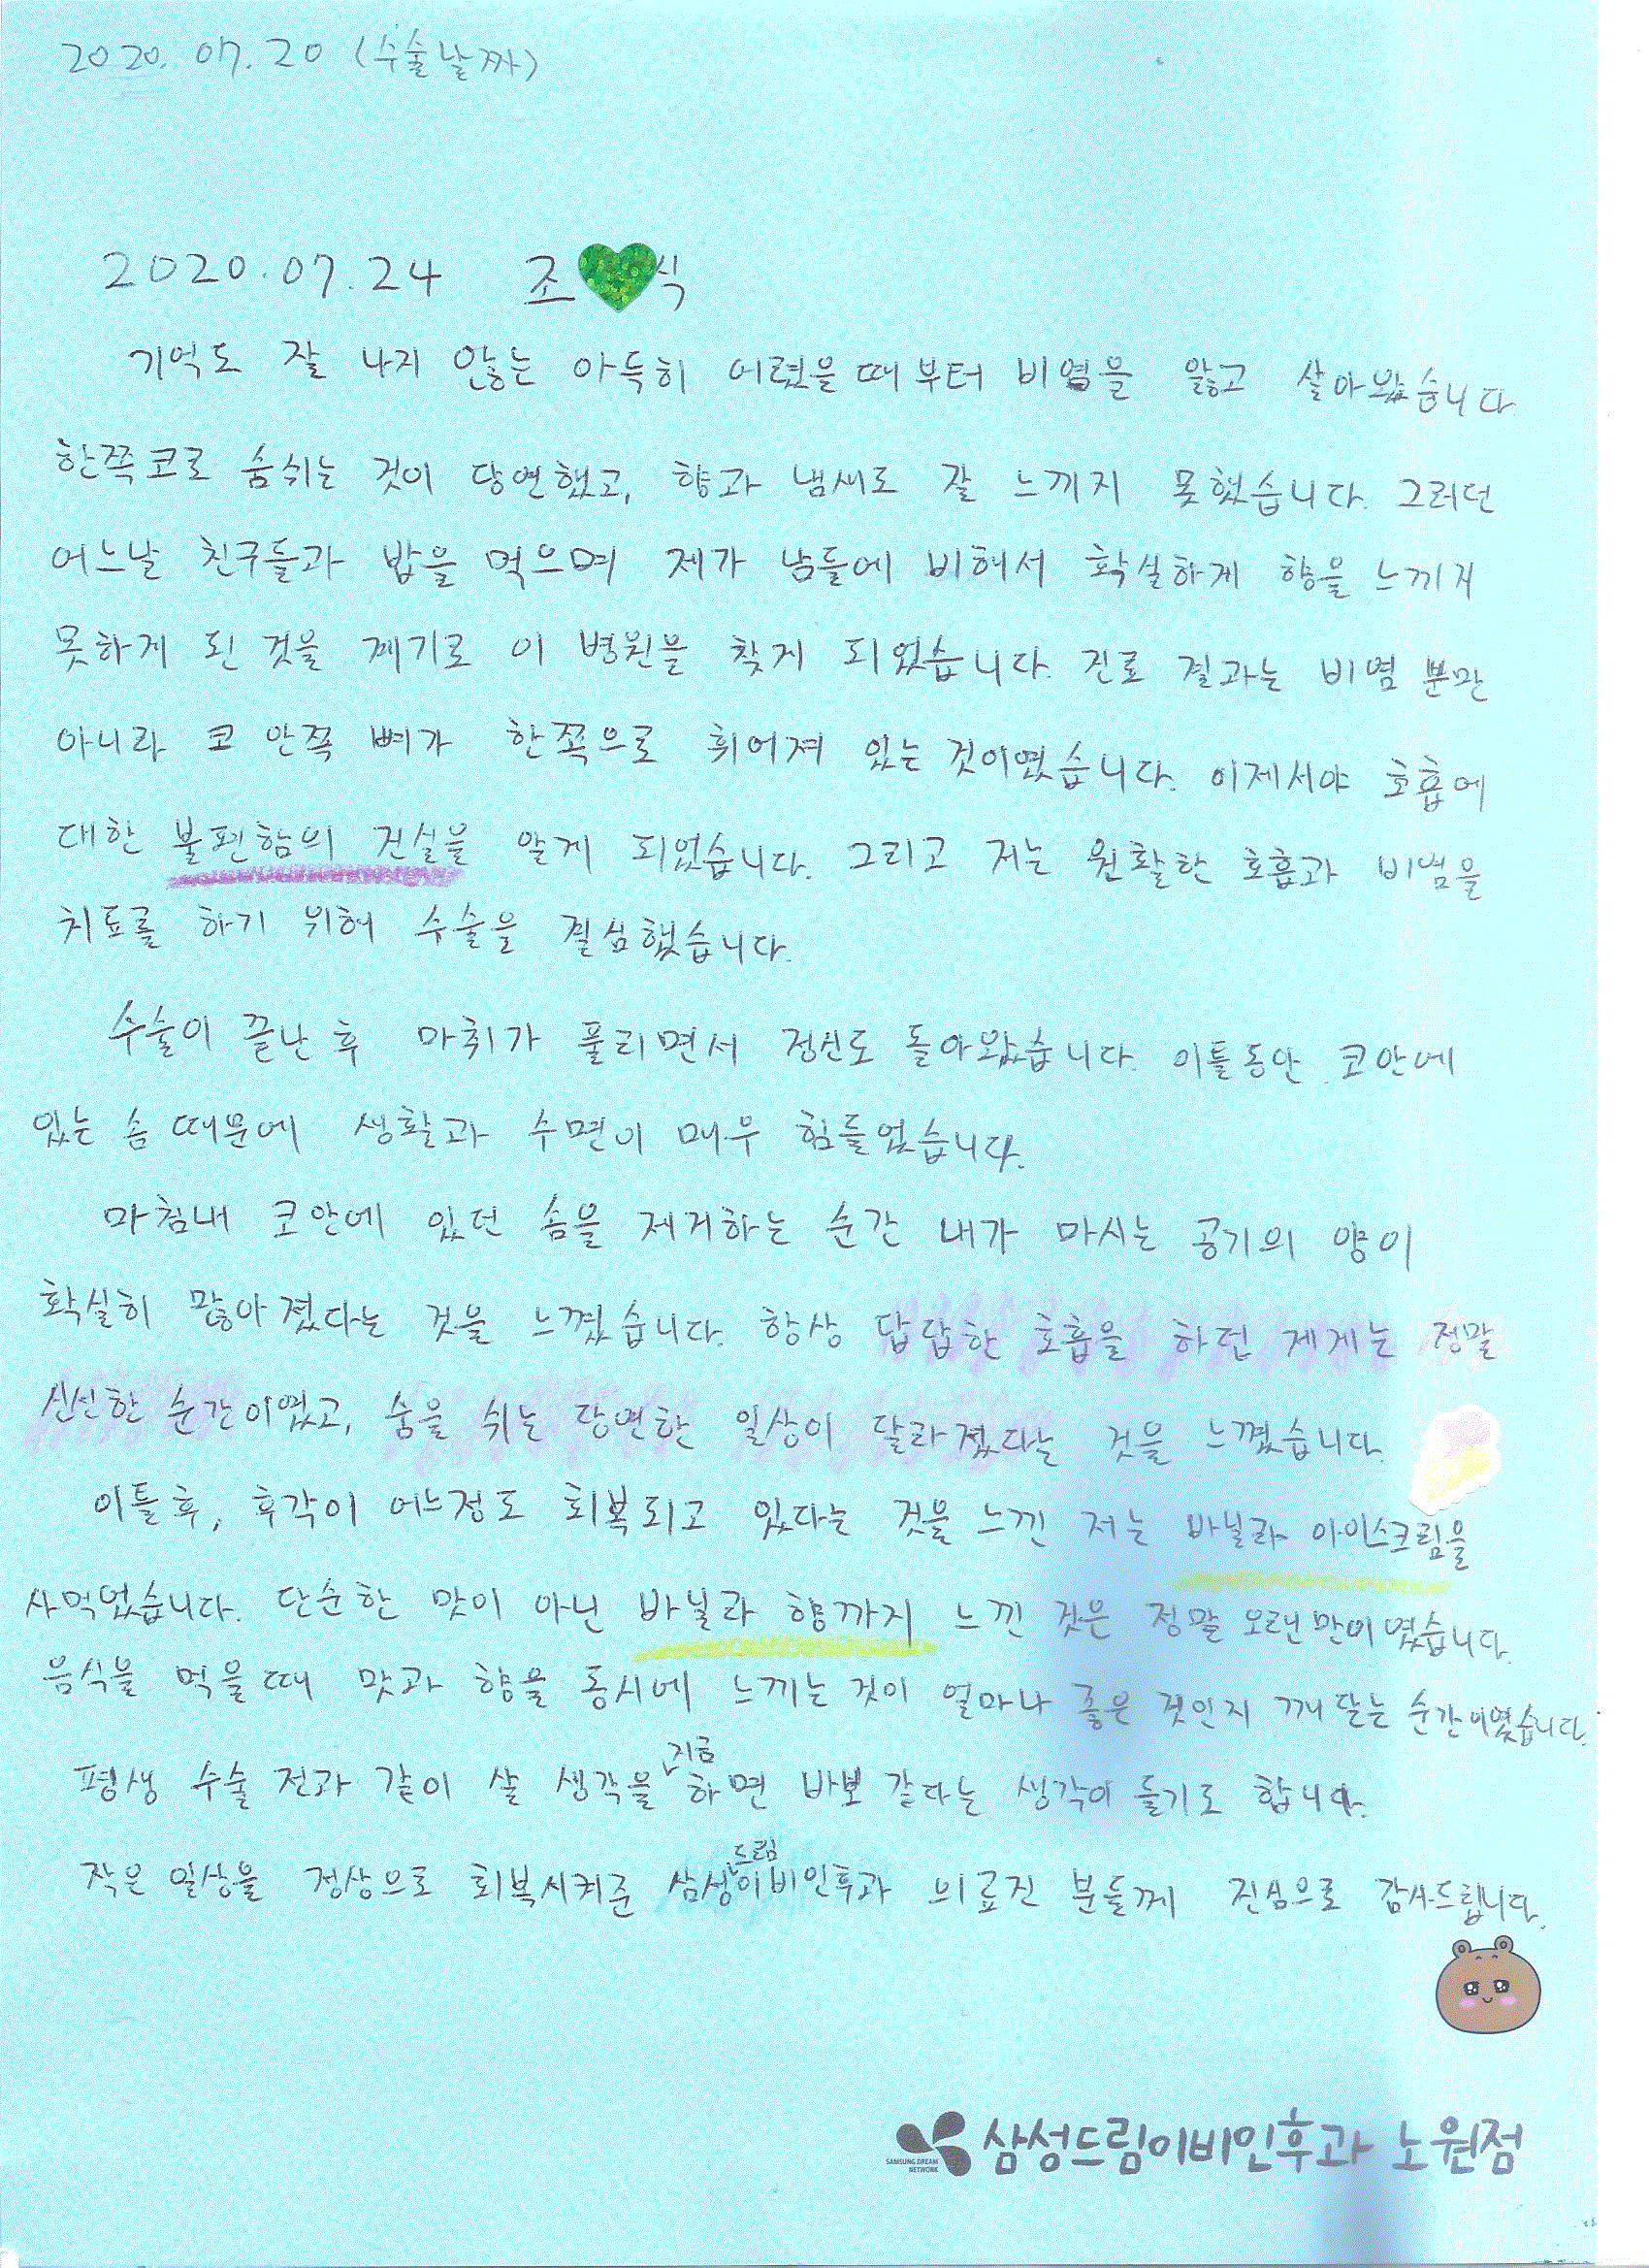 2020. 07. 20 (수술날짜)
2020. 07. 24 조 식
기억도 잘 나지 않는 아득히 어렸을때부터 비염을 앓고 살아왔습니다
한쪽코로 숨쉬는 것이 당연했고, 향과 냄새로 잘 느끼지 못했습니다. 그러던
어느날 친구들과 밥을 먹으며 제가 남들에 비해서 확실하게 향을 느끼지
못하게 된 것을 계기로 이 병원을 찾게 되었습니다. 진료 결과는 비염 뿐만
아니라 코 안쪽 뼈가 한쪽으로 휘어져 있는 것이였습니다. 이제서야 호흡에
대한 불편함의 진실을 알게 되었습니다. 그리고 저는 원활한 호흡과 비염을
치료를 하기 위해 수술을 결심했습니다.
수술이 끝난 후 마취가 풀리면서 정신도 돌아왔습니다. 이틀동안 코안에
있는 솜 때문에 생활과 수면이 매우 힘들었습니다.
마침내 코안에 있던 솜을 제거하는 순간 내가 마시는 공기의 양이
확실히 많아졌다는 것을 느꼈습니다. 항상 답답한 호흡을 하던 제게는 정말
신선한 순간이였고, 숨을 쉬는 당연한 일상이 달라졌다는 것을 느꼈습니다.
이틀 후, 후각이 어느정도 회복되고 있다는 것을 느낀 저는 바닐라 아이스크림을
사먹었습니다. 단순한 맛이 아닌 바닐라 향까지 느낀 것은 정말 오랜만이였습니다.
음식을 먹을때 맛과 향을 동시에 느끼는 것이 얼마나 좋은 것인지 깨닫는 순간이였습니다.
평생 수술 전과 같이 살 생각을 지금 하면 바보 같다는 생각이 들기도 합니다.
작은 일상을 정상으로 회복시켜준 삼성드림이비인후과 의료진 분들께 진심으로 감사드립니다.
SAMSUNG DREAM NETWORK 삼성드림이비인후과 노원점